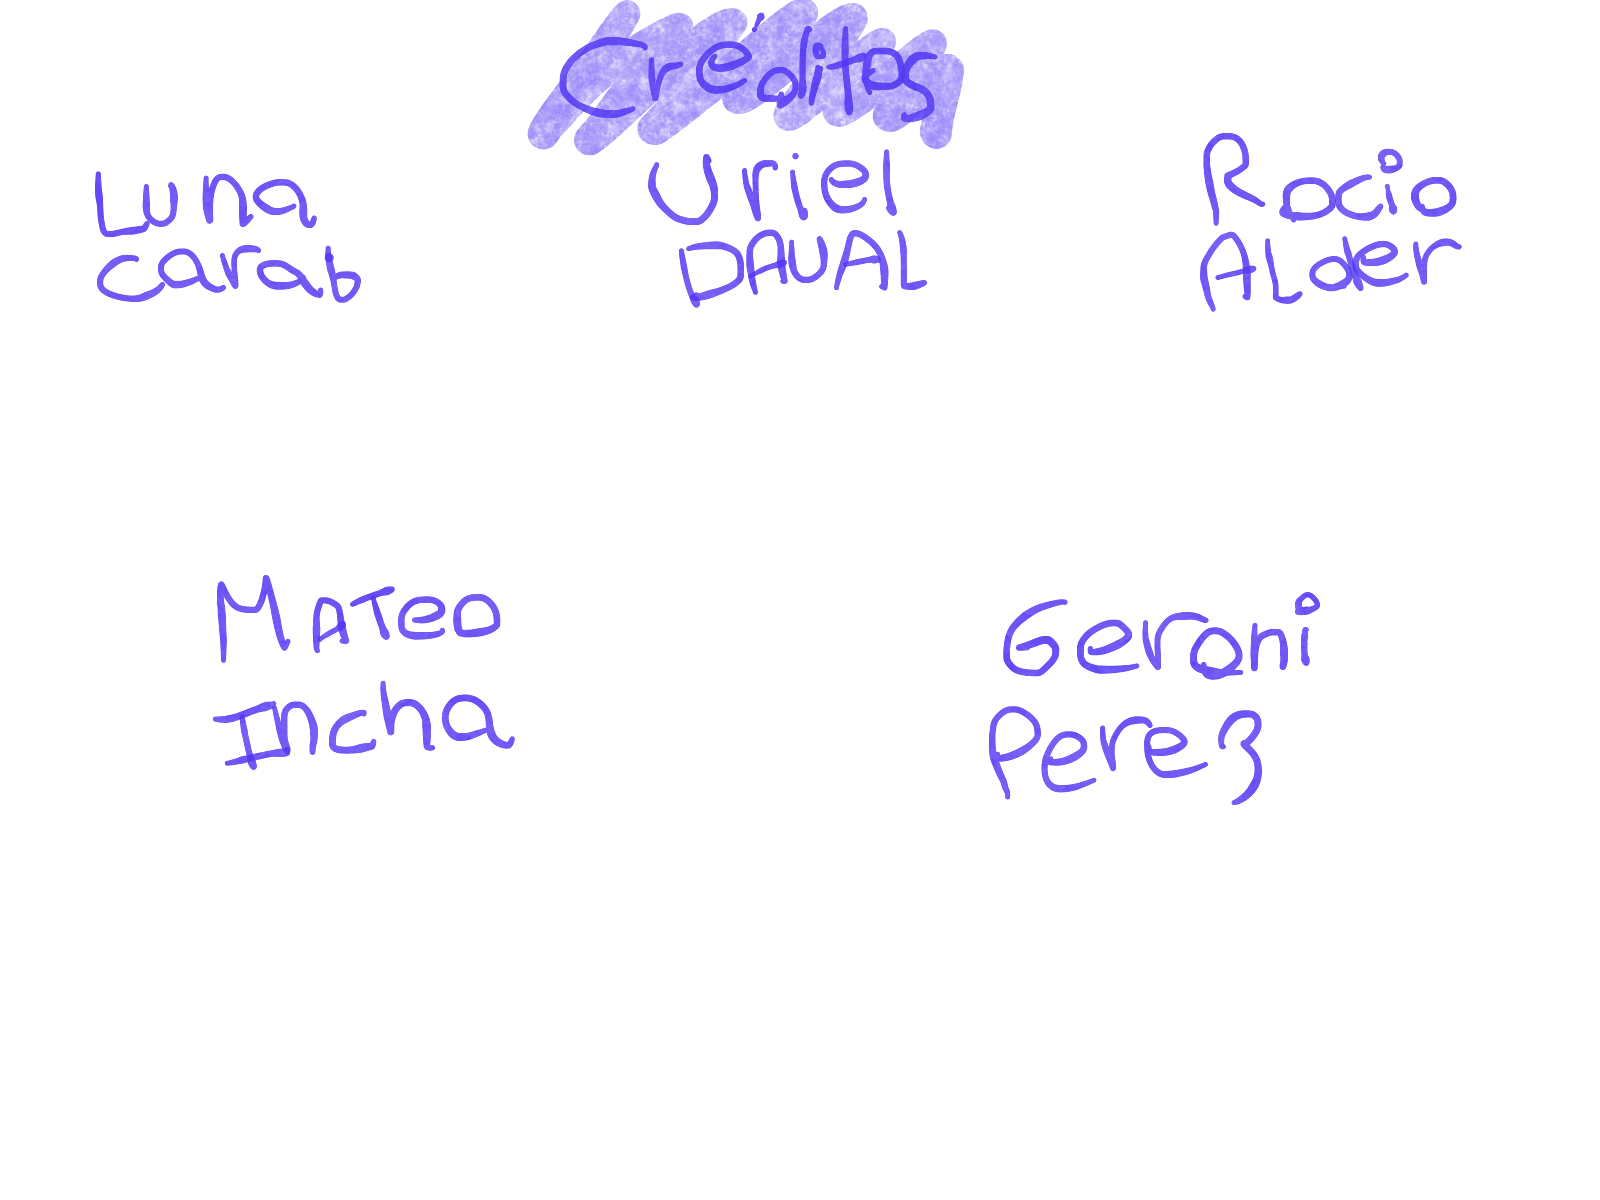 Créditos
Luna
Carab
Uriel
DAUAL
Rocio
ALder
MATeo
Incha
Geroni
Perez